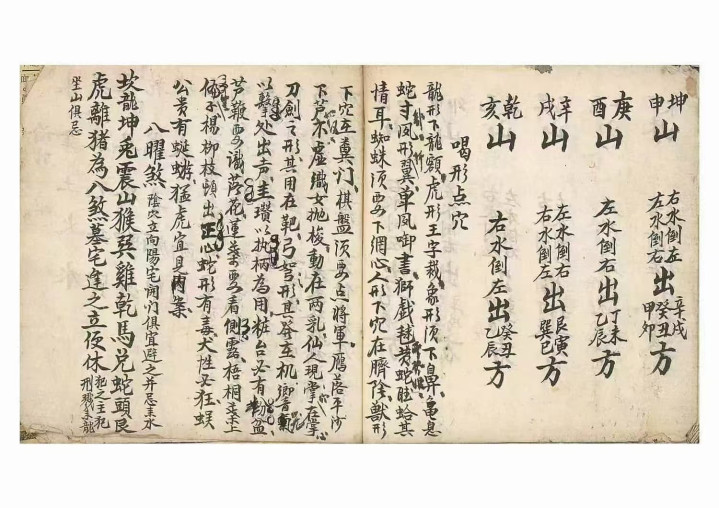 坤申山 右水倒左出辛戌癸丑甲卯方
庚酉山 左水倒右出丁未乙辰方
辛戌山 左水倒右右水倒左出艮寅巽巳方
乾亥山 右水倒左出癸丑乙辰方
喝形点穴
龍形下龍額虎形王字裁象形須下鼻龟息
蛇寸凤形翼单凤啣書獅戯毬蛇蛤其
情耳蜘蛛須要下網心人形下穴在臍陰獸形
下穴在糞门棋盤須要点將軍雁落平沙
下芦虚織女抛梭動在両乳仙人現掌在掌心
刀劍之形其用在靶弓弩形其發在机
以擊处出声圭瓚以执柄為用粧台必有粉盆
芦鞭要識落花蓮葉要看側露梧桐葉上
楊柳枝頭出正心蛇形有毒犬性必狂蜈
公貴有蜒蝣猛虎宜見肉案
八曜煞 陰穴立向陽宅開门俱宜避之并忌来水
坎龍坤兎震山猴巽雞乾馬兌蛇頭艮
虎離猪為八煞墓宅逢之立便休 犯之主犯刑戮来龍
坐山俱忌